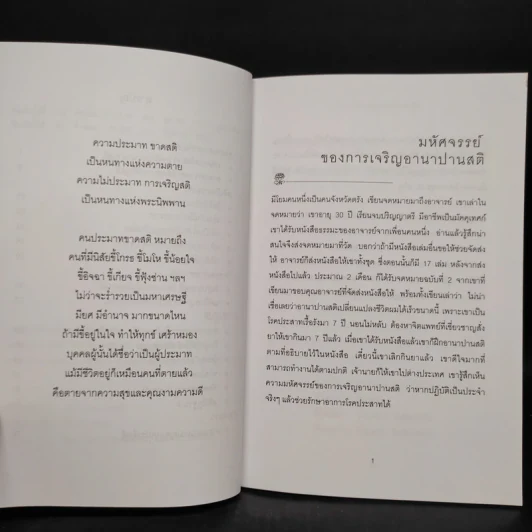 ความประมาท ขาดสติ
เป็นหนทางแห่งความตาย
ความไม่ประมาท การเจริญสติ
เป็นหนทางแห่งพระนิพพาน
คนประมาทขาดสติ หมายถึง
คนที่มีนิสัยขี้โกรธ ขี้โมโห ขี้น้อยใจ
ขี้อิจฉา ขี้เกียจ ขี้ฟุ้งซ่าน ฯลฯ
ไม่ว่าจะร่ำรวยเป็นมหาเศรษฐี
มียศ มีอำนาจ มากขนาดไหน
ถ้ามีขี้อยู่ในใจ ทำให้ทุกข์ เศร้าหมอง
บุคคลผู้นั้นได้ชื่อว่าเป็นผู้ประมาท
แม้มีชีวิตอยู่ก็เหมือนคนที่ตายแล้ว
คือตายจากความสุขและคุณงามความดี
มหัศจรรย์
ของการเจริญอานาปานสติ
มีโยมคนหนึ่งเป็นคนจังหวัดตรัง เขียนจดหมายมาถึงอาจารย์ เขาเล่าใน
จดหมายว่า เขาอายุ 30 ปี เรียนจบปริญญาตรี มีอาชีพเป็นมัคคุเทศก์
เขาได้รับหนังสือธรรมะของอาจารย์จากเพื่อนคนหนึ่ง อ่านแล้วรู้สึกน่า
สนใจจึงส่งจดหมายมาที่วัด บอกว่าถ้ามีหนังสือเล่มอื่นขอให้ช่วยจัดส่ง
ให้ อาจารย์ก็ส่งหนังสือให้เขาทั้งชุด ซึ่งตอนนั้นก็มี 17 เล่ม หลังจากส่ง
หนังสือไปแล้ว ประมาณ 2 เดือน ก็ได้รับจดหมายฉบับที่ 2 จากเขาที่
เขียนมาขอบคุณอาจารย์ที่จัดส่งหนังสือให้ พร้อมทั้งเขียนเล่าว่า ไม่น่า
เชื่อเลยว่าอานาปานสติเปลี่ยนแปลงชีวิตผมได้เร็วขนาดนี้ เพราะเขาเป็น
โรคประสาทเรื้อรังมา 7 ปี นอนไม่หลับ ต้องหาจิตแพทย์ที่เชี่ยวชาญสั่ง
ยาให้เขากินมา 7 ปีแล้ว เมื่อเขาได้รับหนังสือแล้วเขาก็ฝึกอานาปานสติ
ตามที่อธิบายไว้ในหนังสือ เดี๋ยวนี้เขาเลิกกินยาแล้ว เขาดีใจมากที่
สามารถทำงานได้ตามปกติ เจ้านายก็ให้เขาไปต่างประเทศ เขารู้สึกเห็น
ความมหัศจรรย์ของการเจริญอานาปานสติ ว่าหากปฏิบัติเป็นประจำ
จริงๆ แล้วช่วยรักษาอาการโรคประสาทได้
1